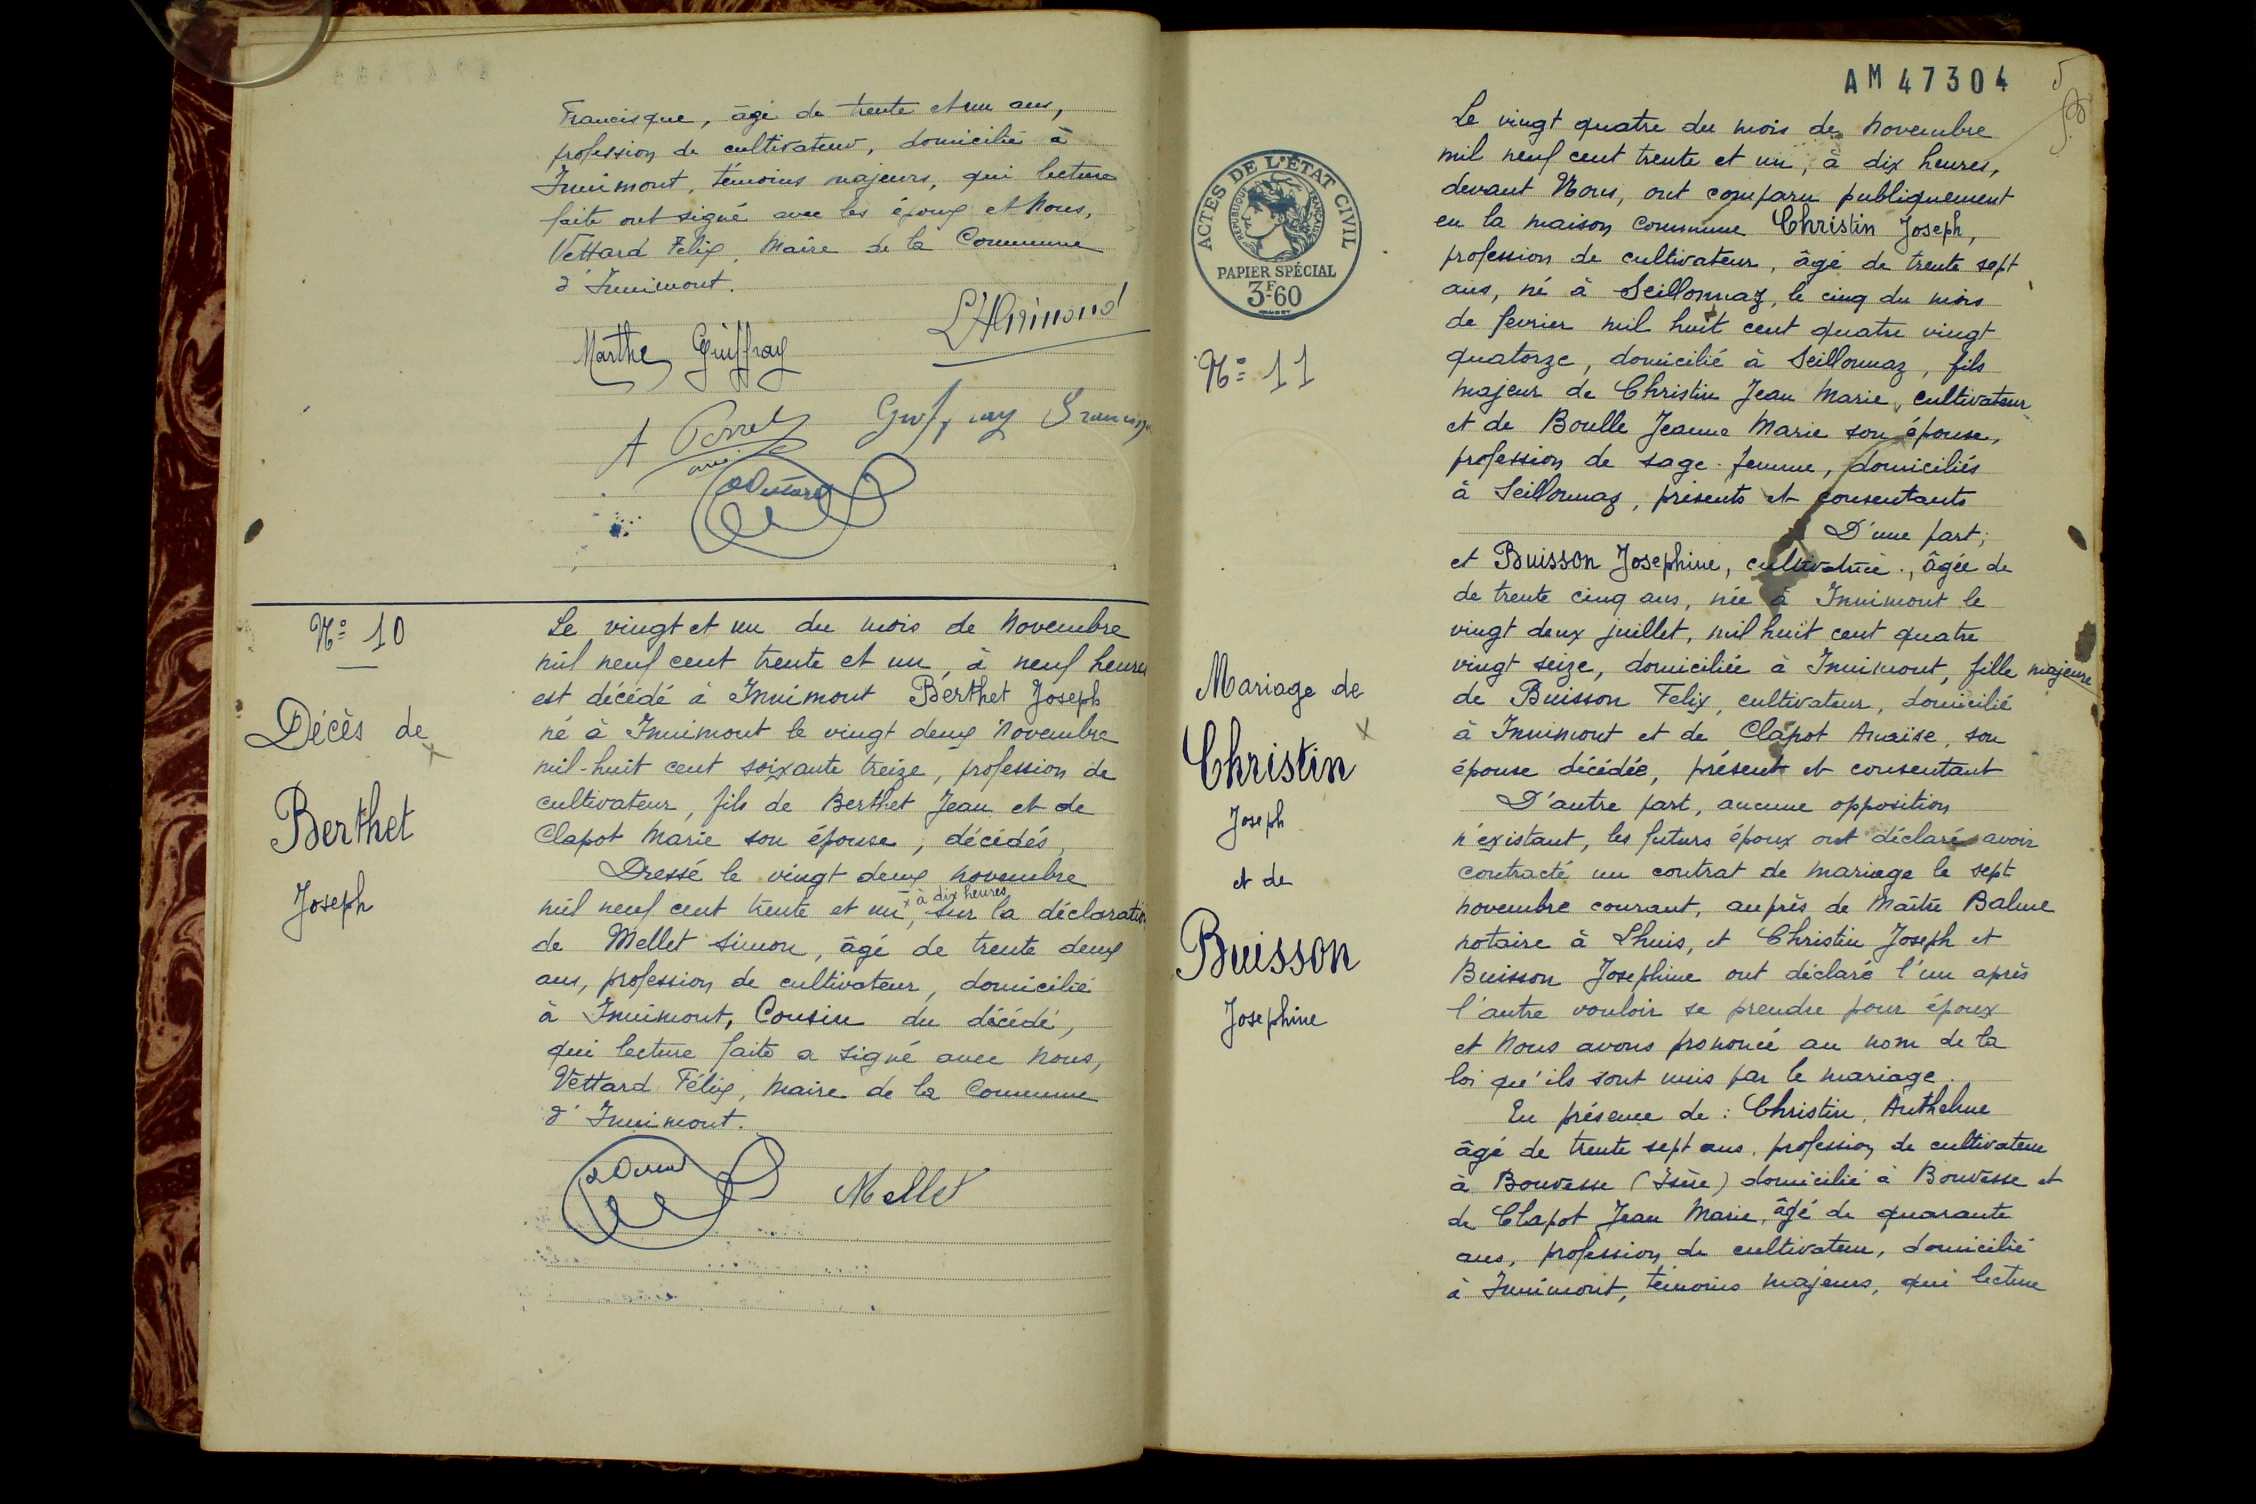 Francisque, âgé de trente et un ans,
profession de cultivateur, domicilié à
Innimont, témoins majeurs, qui lecture
faite ont signé avec les époux et Nous,
Vettard Felix, Maire de la Commune
d'Innimont.
Marthe Guiffray
A Perret
N° 10
Décès de
Berthet
Joseph
Le vingt et un du mois de Novembre
mil neuf cent trente et un, à neuf heures
est décédé à Innimont Berthet Joseph
né à Innimont le vingt deux Novembre
mil-huit cent soixante treize, profession de
cultivateur, fils de Berthet Jean et de
Clapot Marie son épouse, décédés,
Dressé le vingt deux novembre
x à dix heures
mil neuf cent trente et un, sur la déclaration
de Mellet Simon, âgé de trente deux
ans, profession de cultivateur, domicilié
à Innimont, Cousin du décédé,
qui lecture faite a signé avec Nous,
Vettard Félix, Maire de la Commune
d'Innimont.
Mellet
AM 47304
5
ACTES DE L'ÉTAT CIVIL
RÉPUBLIQUE FRANÇAISE
PAPIER SPÉCIAL
3F60
N° 11
Mariage de
Christin
Joseph
et de
Buisson
Josephine
Le vingt quatre du mois de Novembre
mil neuf cent trente et un, à dix heures,
devant Nous, ont comparu publiquement
en la maison commune Christin Joseph,
profession de cultivateur, âgé de trente sept
ans, né à Seillonnaz, le cinq du mois
de fevrier mil huit cent quatre vingt
quatorze, domicilié à Seillonnaz, fils
majeur de Christin Jean Marie, cultivateur
et de Boulle Jeanne Marie son épouse,
profession de sage-femme, domiciliés
à Seillonnaz, présents et consentants
D'une part;
et Buisson Josephine, cultivatrice, âgée de
de trente cinq ans, née à Innimont le
vingt deux juillet, mil huit cent quatre
vingt seize, domiciliée à Innimont, fille majeure
de Buisson Felix, cultivateur, domicilié
à Innimont et de Clapot Anaïse, son
épouse décédée, présent et consentant
D'autre part, aucune opposition
n'existant, les futurs époux ont déclaré avoir
contracté un contrat de mariage le sept
novembre courant, auprès de Maître Balme
notaire à Lhuis, et Christin Joseph et
Buisson Josephine ont déclaré l'un après
l'autre vouloir se prendre pour époux
et Nous avons prononcé au nom de la
loi qu'ils sont unis par le mariage.
En présence de: Christin, Anthelme
âgé de trente sept ans, profession de cultivateur
à Bouvesse (Isère) domicilié à Bouvesse et
de Clapot Jean Marie, âgé de quarante
ans, profession de cultivateur, domicilié
à Innimont, témoins majeurs, qui lecture